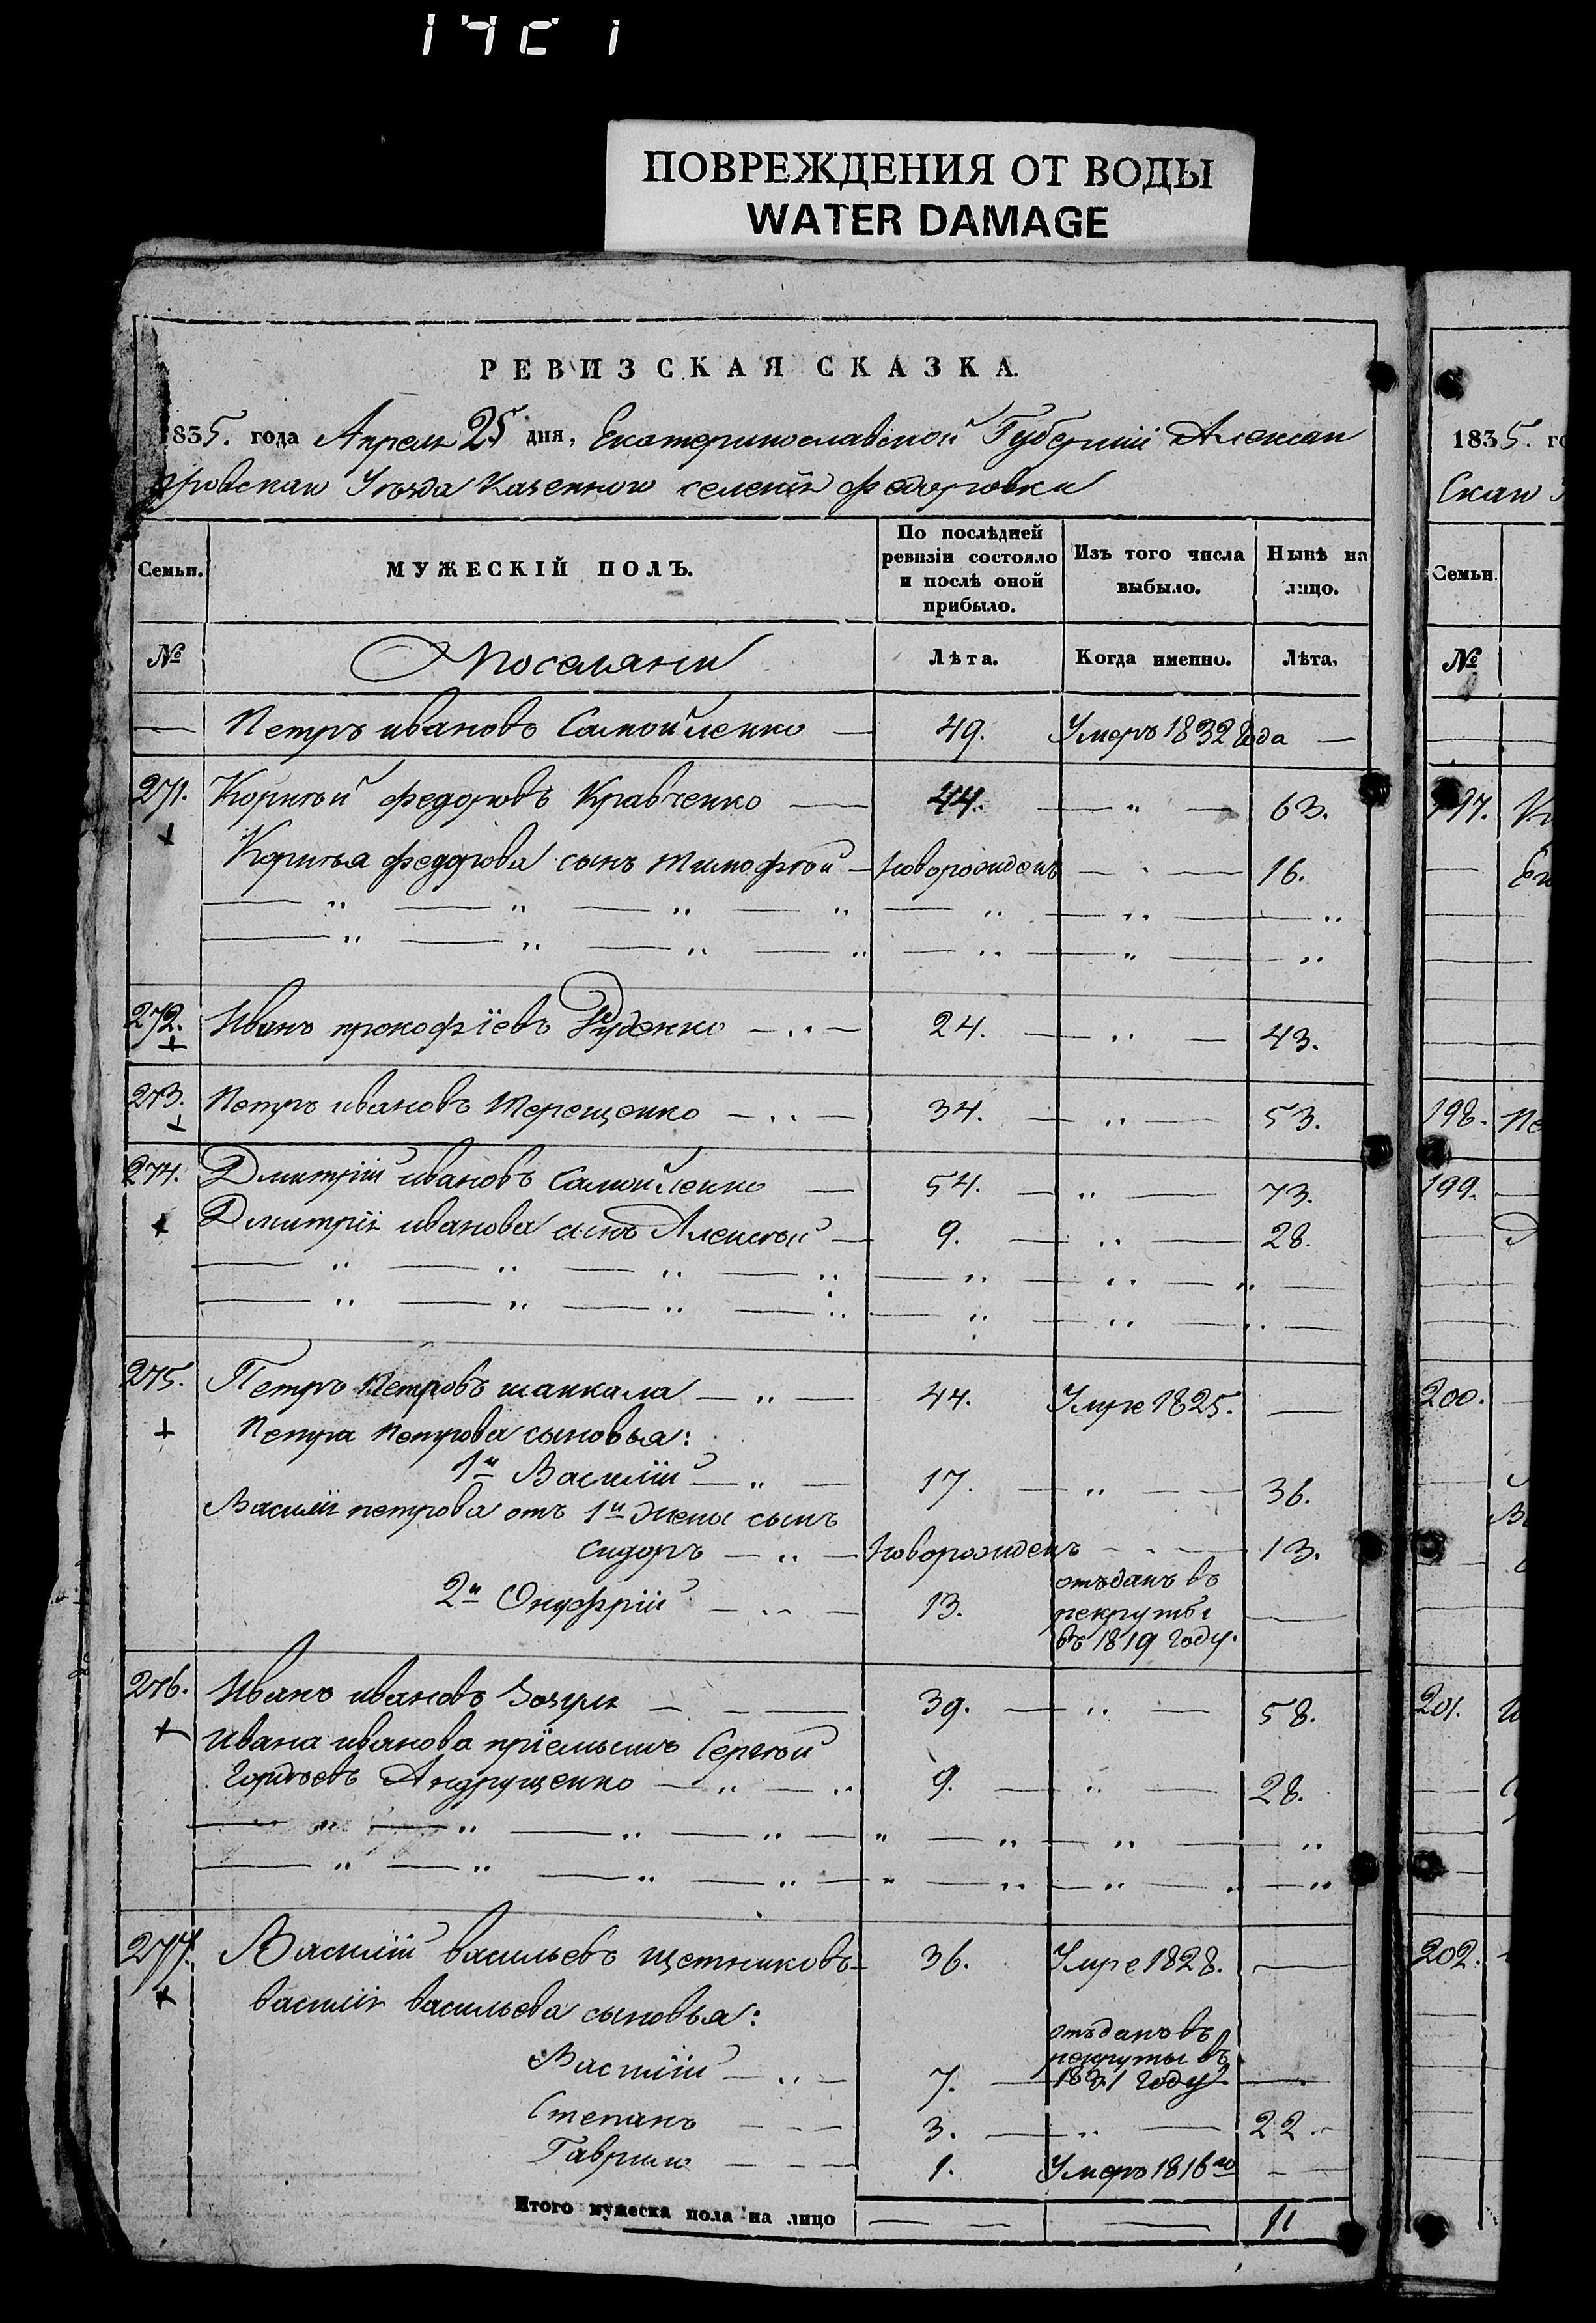 ПОВРЕЖДЕНИЯ ОТ ВОДЫ
WATER DAMAGE
РЕВИЗСКАЯ СКАЗКА.
1835. года Апреля 25 дня, Екатеринославской Губернии Алексан
дровскаго Уезда Казенного селения Федоровки
Семьи. МУЖЕСКІЙ ПОЛЪ. По послѣдней ревизіи состояло и послѣ оной прибыло. Изъ того числа выбыло. Нынѣ на лицо.
№ Поселяни Лѣта. Когда именно. Лѣта.
— Петръ ивановъ Самойленко — 49. Умеръ 1832 года —
271. Корнѣй федоровъ Кравченко — 44. — " — 63.
Корнѣя федорова сынъ тимофѣй — Новорожденъ — " — 16.
272. Иванъ прокофїевъ Руденко — " — 24. — " — 43.
273. Петръ ивановъ терещенко — " — 34. — " — 53.
274. Дмитрїй ивановъ Самойленко — 54. — " — 73.
Дмитрїя иванова сынъ Алексѣй — 9. — " — 28.
275. Петръ Петровъ шаткала — " — 44. Умре 1825. —
Петра Петрова сыновья:
1й Василїй — " — 17. — " — 36.
Василїя петрова отъ 1й жены сынъ
сидоръ — " — Новорожденъ — " — 13.
2й Онуфрїй — " — 13. отъданъ въ рекруты въ 1819 году. —
276. Иванъ ивановъ Зозуля — 39. — " — 58.
Ивана иванова прїемышъ Сергѣй
Гордѣевъ Андрущенко — " — 9. — " — 28.
277. Василїй васильевъ щетниковъ — 36. Умре 1828. —
василїя васильева сыновья:
Василїй — " — 7. — отъданъ въ рекруты въ 1831 году —
Степанъ — 3. — " — 22.
Гаврило — 1. Умеръ 1816го —
Итого мужеска пола на лицо — — 11
1835. го
Скаго
Семьи.
№
197.
198. Пе
199.
200.
201. И
202.